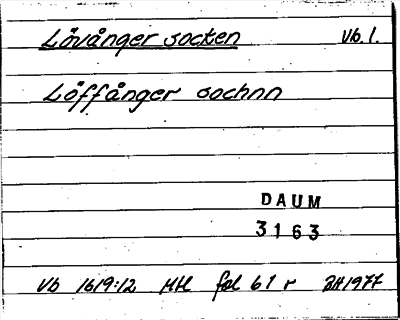 Lövånger socken Vb. l.
Löffånger sochnn
DAUM
3163
Vb 1619:12 HH fol 61 r BH1977